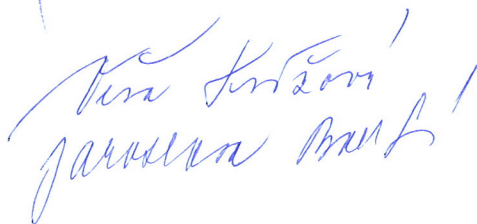 Věra Křížová
Jaroslava